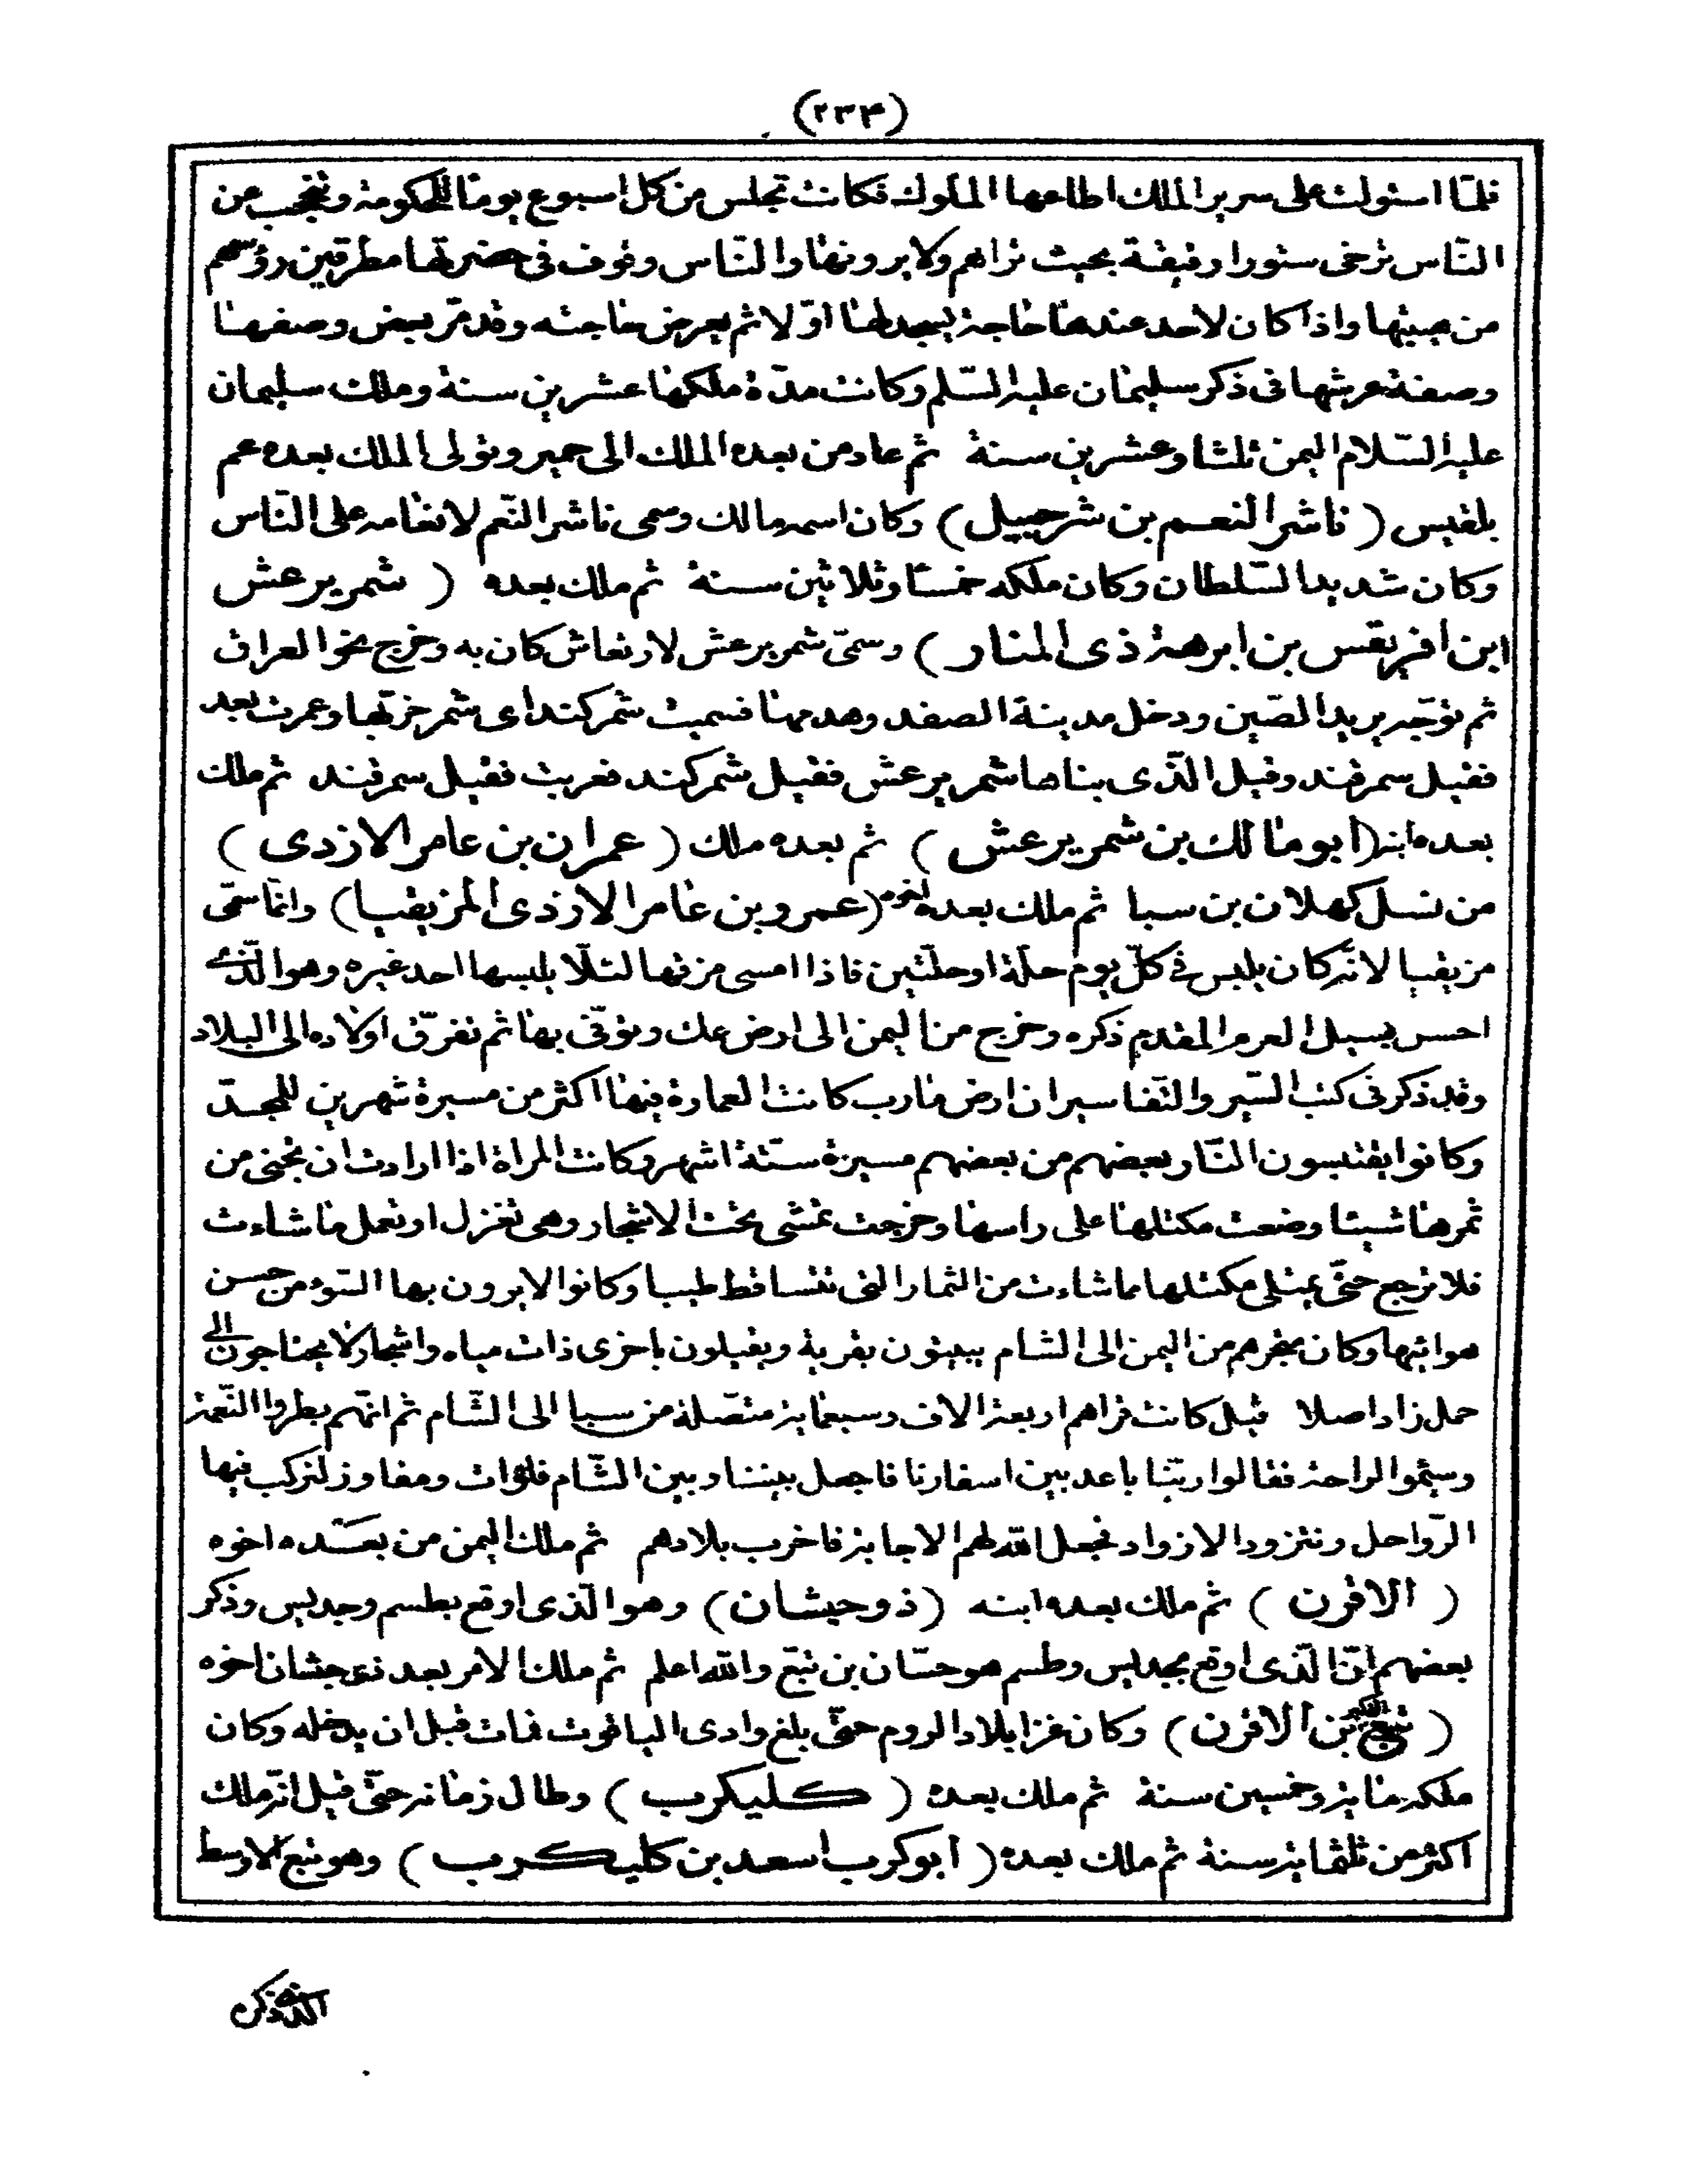 (٢٣۴)
فلمّا استولت على سرير الملك اطاعها الملوك فكانت تجلس من كل اسبوع يوما للحكومة وتحتجب عن
النّاس ترخى ستورا رقيقة بحيث تراهم ولا يرونها والنّاس وقوف فى حضرتها مطرقين رؤسهم
من هيبتها واذا كان لاحد عندها حاجة يسجد لها اوّلا ثم يعرض حاجته وقد مرّ بعض وصفها
وصفة عرشها فى ذكر سليمان عليه السّلم وكانت مدّة ملكها عشرين سنة وملك سليمان
عليه السّلام اليمن ثلثا وعشرين سنة ثم عاد من بعده الملك الى حمير وتولى الملك بعده عم
بلقيس (ناشر النعم بن شرحبيل) وكان اسمه مالك وسمى ناشر النّعم لانعامه على النّاس
وكان شديد السّلطان وكان ملكه خمسا وثلاثين سنة ثم ملك بعده (شمر يرعش
ابن افريقس بن ابرهة ذى المنار) وسمّى شمر يرعش لارتعاش كان به وخرج نحو العراق
ثم توجّه يريد الصّين ودخل مدينة الصغد وهدمها فسميت شمركند اى شمر خرّبها وعمرت بعد
فقيل سمرقند وقيل الّذى بناها شمر يرعش فقيل شمركند فعربت فقيل سمرقند ثم ملك
بعده ابنه (ابو مالك بن شمر يرعش) ثم بعده ملك (عمران بن عامر الازدى)
من نسل كهلان بن سبا ثم ملك بعده اخوه (عمرو بن عامر الازدى المزيقيا) وانّما سمّى
مزيقيا لانّه كان يلبس فى كلّ يوم حلّة او حلّتين فاذا امسى مزقها لئلّا يلبسها احد غيره وهو الّذى
احس بسيل العرم المقدم ذكره وخرج من اليمن الى ارض عك وتوفّى بها ثم تفرّق اولاده الى البلاد
وقد ذكر فى كتب السّير والتّفاسير ان ارض مارب كانت العمارة فيها اكثر من مسيرة شهرين للمجدّ
وكانوا يقتبسون النّار بعضهم من بعضهم مسيرة ستّة اشهر وكانت المراة اذا ارادت ان تجنى من
ثمرها شيئا وضعت مكتلها على راسها وخرجت تمشى تحت الاشجار وهى تغزل او تعمل ما شاءت
فلا ترجع حتّى يمتلى مكتلها مما شاءت من الثمار التى تتساقط طيبا وكانوا لا يرون بها السّوء من حسن
هوائها وكان سفرهم من اليمن الى الشام يبيتون بقرية ويقيلون باخرى ذات مياه واشجار لا يحتاجون الى
حمل زاد اصلا قيل كانت قراهم اربعة الاف وسبعمائة متصلة من سبا الى الشّام ثم انّهم بطروا النّعمة
وسئموا الراحة فقالوا ربّنا باعد بين اسفارنا فاجعل بيننا وبين الشّام فلوات ومفاوز لنركب فيها
الرّواحل ونتزود الازواد فجعل الله لهم الاجابة فاخرب بلادهم ثم ملك اليمن من بعده اخوه
(الاقرن) ثم ملك بعده ابنه (ذو حبشان) وهو الّذى اوقع بطسم وجديس وذكر
بعضهم انّ الّذى اوقع بجديس وطسم هو حسّان بن تبّع والله اعلم ثم ملك الامر بعد ذى حبشان اخوه
(تبّع بن الاقرن) وكان غزا بلاد الروم حتّى بلغ وادى الياقوت فمات قبل ان يدخله وكان
ملكه مائة وخمسين سنة ثم ملك بعده (كليكرب) وطال زمانه حتّى قيل انّه ملك
اكثر من ثلثمائة سنة ثم ملك بعده (ابو كرب اسعد بن كليكرب) وهو تبّع الاوسط